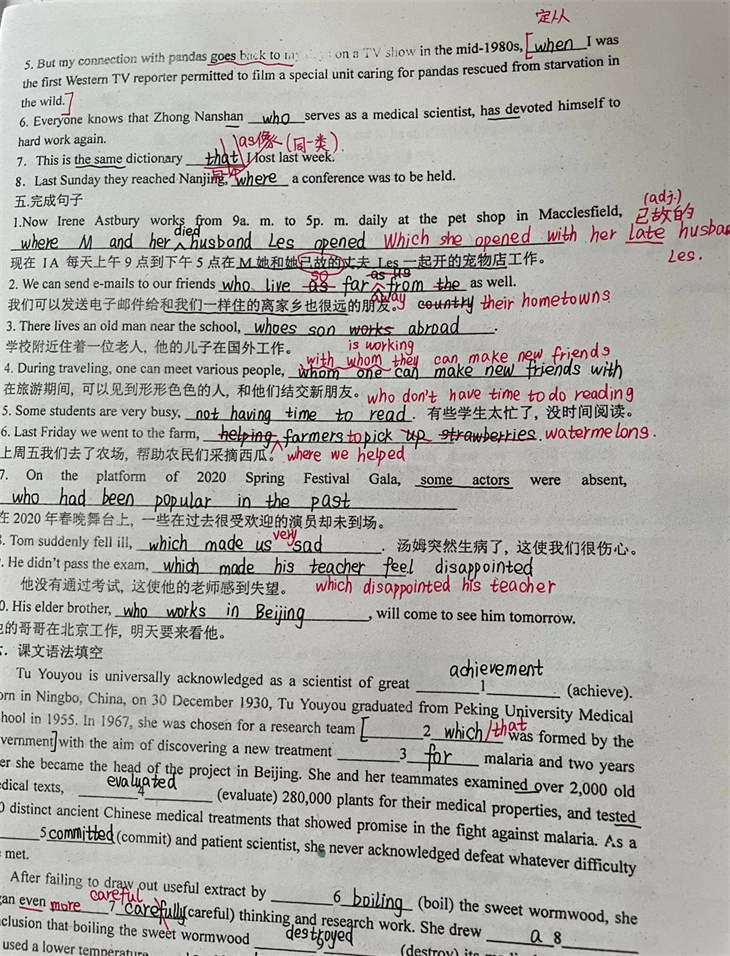 定从
5. But my connection with pandas goes back to my days on a TV show in the mid-1980s, [ when I was
the first Western TV reporter permitted to film a special unit caring for pandas rescued from starvation in
the wild. ]
6. Everyone knows that Zhong Nanshan who serves as a medical scientist, has devoted himself to
hard work again.
as像 (同一类)
7. This is the same dictionary that I lost last week.
同一本
8. Last Sunday they reached Nanjing, where a conference was to be held.
五.完成句子
1.Now Irene Astbury works from 9a. m. to 5p. m. daily at the pet shop in Macclesfield,
(adj.) 已故的
died
where M and her husband Les opened Which she opened with her late husban Les.
现在 IA 每天上午 9 点到下午 5 点在 M 她和她已故的丈夫 Les 一起开的宠物店工作。
so as us
2. We can send e-mails to our friends who live as far from the as well.
away country their hometowns
我们可以发送电子邮件给和我们一样住的离家乡也很远的朋友。
3. There lives an old man near the school, whoes son works abroad.
is working
学校附近住着一位老人, 他的儿子在国外工作。
with whom they can make new friends
4. During traveling, one can meet various people, whom one can make new friends with
在旅游期间, 可以见到形形色色的人, 和他们结交新朋友。 who don't have time to do reading
5. Some students are very busy, not having time to read. 有些学生太忙了, 没时间阅读。
6. Last Friday we went to the farm, helping farmers to pick up strawberries. watermelongs.
上周五我们去了农场, 帮助农民们采摘西瓜。 where we helped
7. On the platform of 2020 Spring Festival Gala, some actors were absent,
who had been popular in the past
在 2020 年春晚舞台上, 一些在过去很受欢迎的演员却未到场。
very
. Tom suddenly fell ill, which made us sad. 汤姆突然生病了, 这使我们很伤心。
. He didn't pass the exam, which made his teacher feel disappointed
他没有通过考试, 这使他的老师感到失望。 which disappointed his teacher
0. His elder brother, who works in Beijing, will come to see him tomorrow.
的哥哥在北京工作, 明天要来看他。
. 课文语法填空
Tu Youyou is universally acknowledged as a scientist of great achievement 1 (achieve).
orn in Ningbo, China, on 30 December 1930, Tu Youyou graduated from Peking University Medical
hool in 1955. In 1967, she was chosen for a research team [ 2 which /that was formed by the
vernment ] with the aim of discovering a new treatment 3 for malaria and two years
er she became the head of the project in Beijing. She and her teammates examined over 2,000 old
edical texts, evaluated 4 (evaluate) 280,000 plants for their medical properties, and tested
0 distinct ancient Chinese medical treatments that showed promise in the fight against malaria. As a
5 committed (commit) and patient scientist, she never acknowledged defeat whatever difficulty
met.
After failing to draw out useful extract by 6 boiling (boil) the sweet wormwood, she
careful
gan even more 7 carefully (careful) thinking and research work. She drew a 8
nclusion that boiling the sweet wormwood destroyed (destroy) its
used a lower temperature